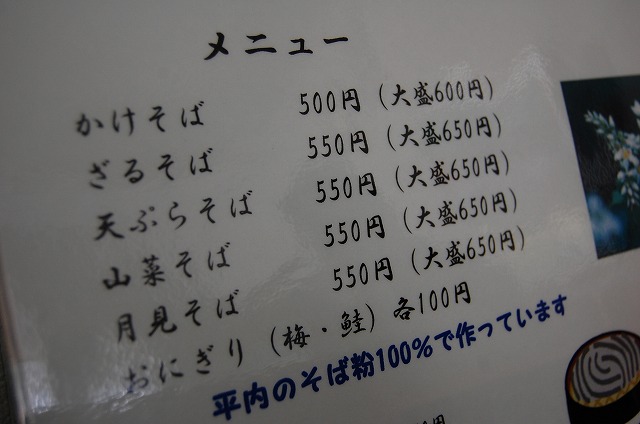 メニュー
かけそば 500円（大盛600円）
ざるそば 550円（大盛650円）
天ぷらそば 550円（大盛650円）
山菜そば 550円（大盛650円）
月見そば 550円（大盛650円）
おにぎり（梅・鮭）各100円
平内のそば粉100％で作っています